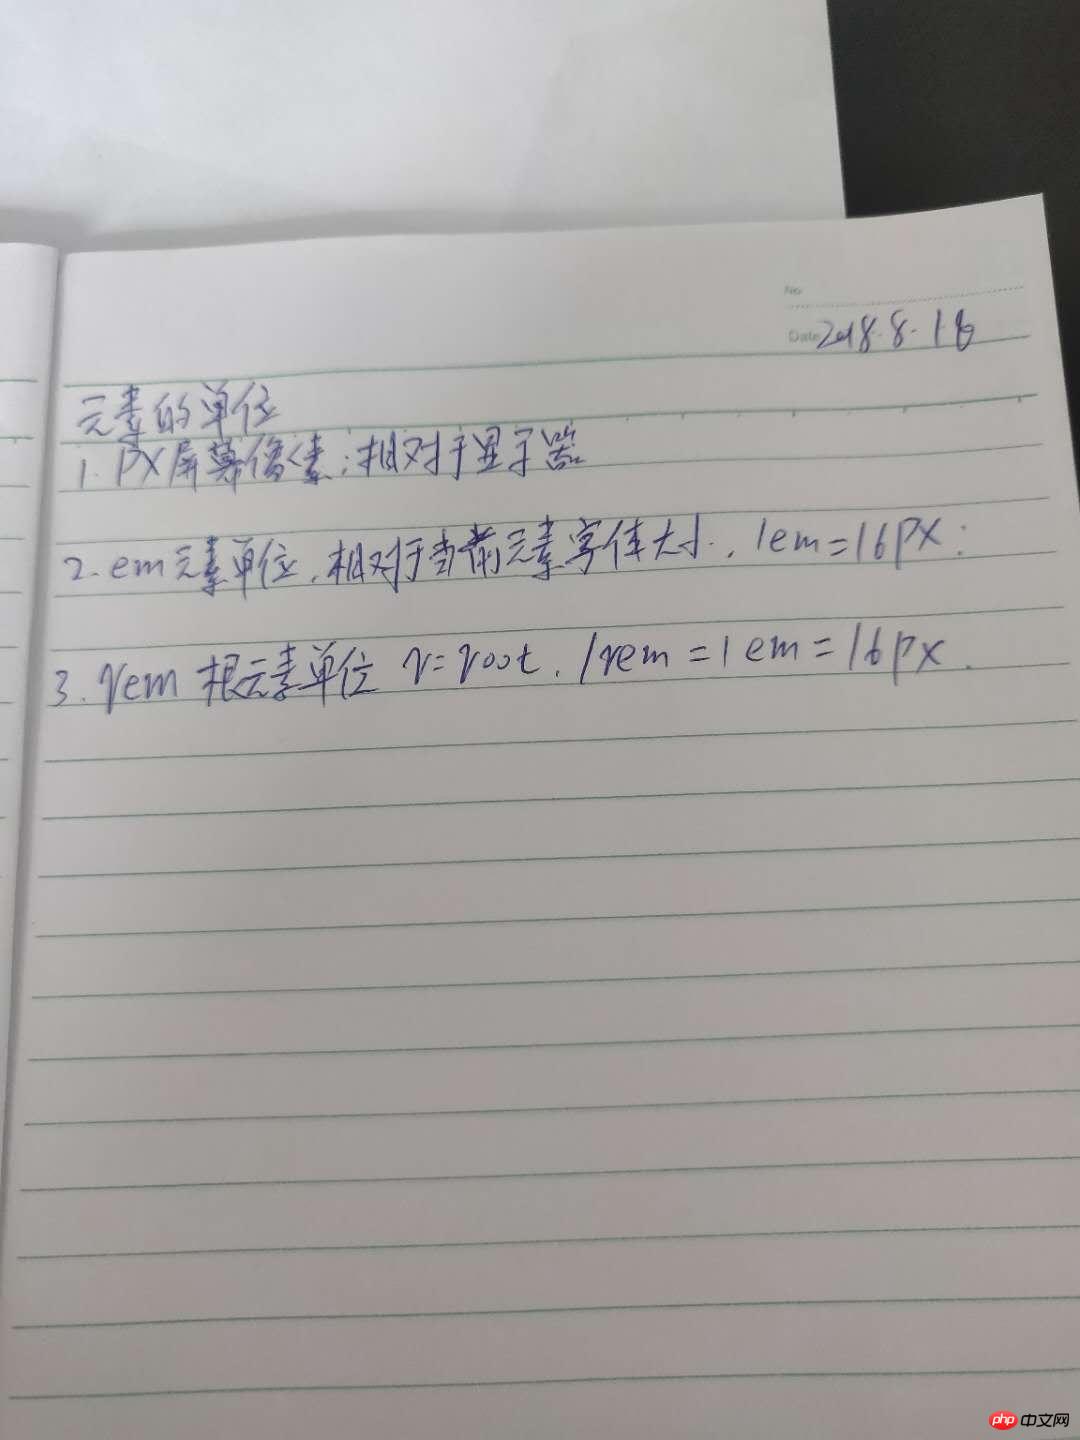 No
Date 2018.8.16
元素的单位
1. PX屏幕像素;相对于显示器
2. em元素单位,相对于当前元素字体大小. 1em=16px;
3. rem 根元素单位 r=root. 1rem=1em=16px.
php 中文网